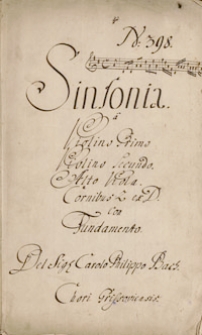 N: 398.
Sinfonia.
a
Violino Primo
Violino Secundo.
Alto Viola.
Cornibus 2 ex D.
Con
Fundamento.
Del Sig: Carolo Philippo Bach.
Chori